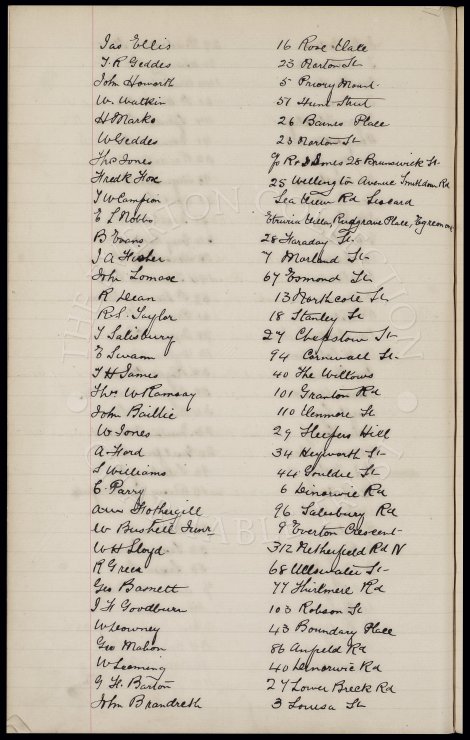 Jas Ellis 16 Rose Vale
T. R Geddes 23 Norton St
John Howorth 5 Priory Mount
W. Watkin 51 Hunt Street
H Marks 26 Baines Place
W Geddes 23 Norton St
Thos Jones c/o R. J. Jones 28 Brunswick St
Fredk Fox 25 Wellington Avenue Smithdown Rd
J W Campion Sea View Rd Liscard
E L Nobbs Etruria Villa, Rudgrave Place, Egremont
B Evans 28 Faraday St
J A Fisher 7 Morland St
John Lomax 67 Esmond St
R Dean 13 Northcote St
R. S. Taylor 18 Stanley St
T Salisbury 27 Chepstow St
E Swann 94 Cornwall St
T H James 40 The Willows
Thos W Ramsay 101 Granton Rd
John Baillie 110 Venmore St
W Jones 29 Sleepers Hill
A Ford 34 Heyworth St
S Williams 44 Gouldie St
E Parry 6 Dinorwic Rd
Fothergill 96 Salisbury Rd
W Bushell Junr 9 Everton Crescent
W H Lloyd 312 Netherfield Rd N
R Green 68 Ullswater St
Geo Barnett 77 Thirlmere Rd
J F Goodburn 103 Robson St
W Downey 43 Boundary Place
Geo Mahon 86 Anfield Rd
W Leeming 40 Dinorwic Rd
G H. Barton 27 Lower Breck Rd
John Brandreth 3 Louisa St
THE EVERTON COLLECTION